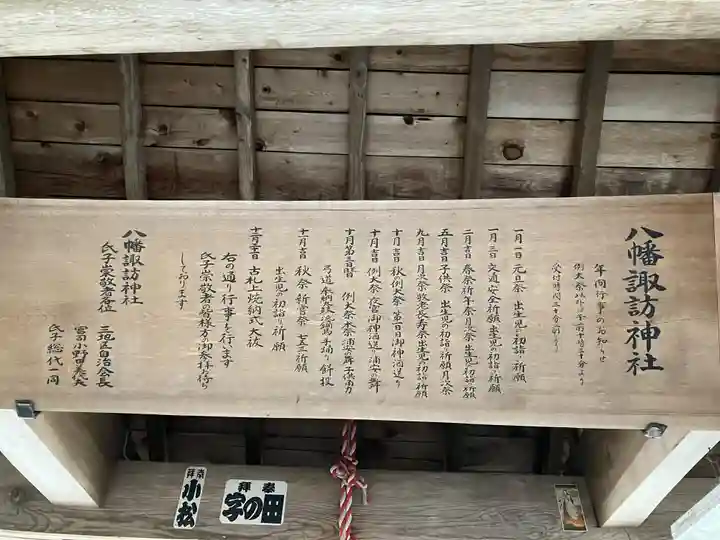 八幡諏訪神社
年間行事のお知らせ
例大祭以外は午前十時三十分より
受付時間三十分前より
一月一日 元旦祭 出生児の初詣り祈願
一月三日 交通安全祈願 出生児の初詣り祈願
二月吉日 春祭祈年祭月次祭 出生児の初詣り祈願
五月吉日 子供祭 出生児の初詣り祈願月次祭
九月吉日 月次祭敬老長寿祭出生児の初詣り祈願
十月吉日 秋例大祭 第一日御神酒送り
十月吉日 例大祭夜宮御神酒送り浦安の舞
十月第三日曜 例大祭本祭 浦安の舞 子供
弓道奉納 手踊り 餅投
十一月吉日 秋祭 新嘗祭 七五三祈願
出生児の初詣り祈願
十二月三十一日 古札上焼納式大祓
右の通り行事を行います
氏子崇敬者皆様方の御参拝お待ち
しております
八幡諏訪神社
氏子崇敬者各位
三地区自治会長
宮司小野田
氏子総代一同
奉拝
小松
奉拝
田の字